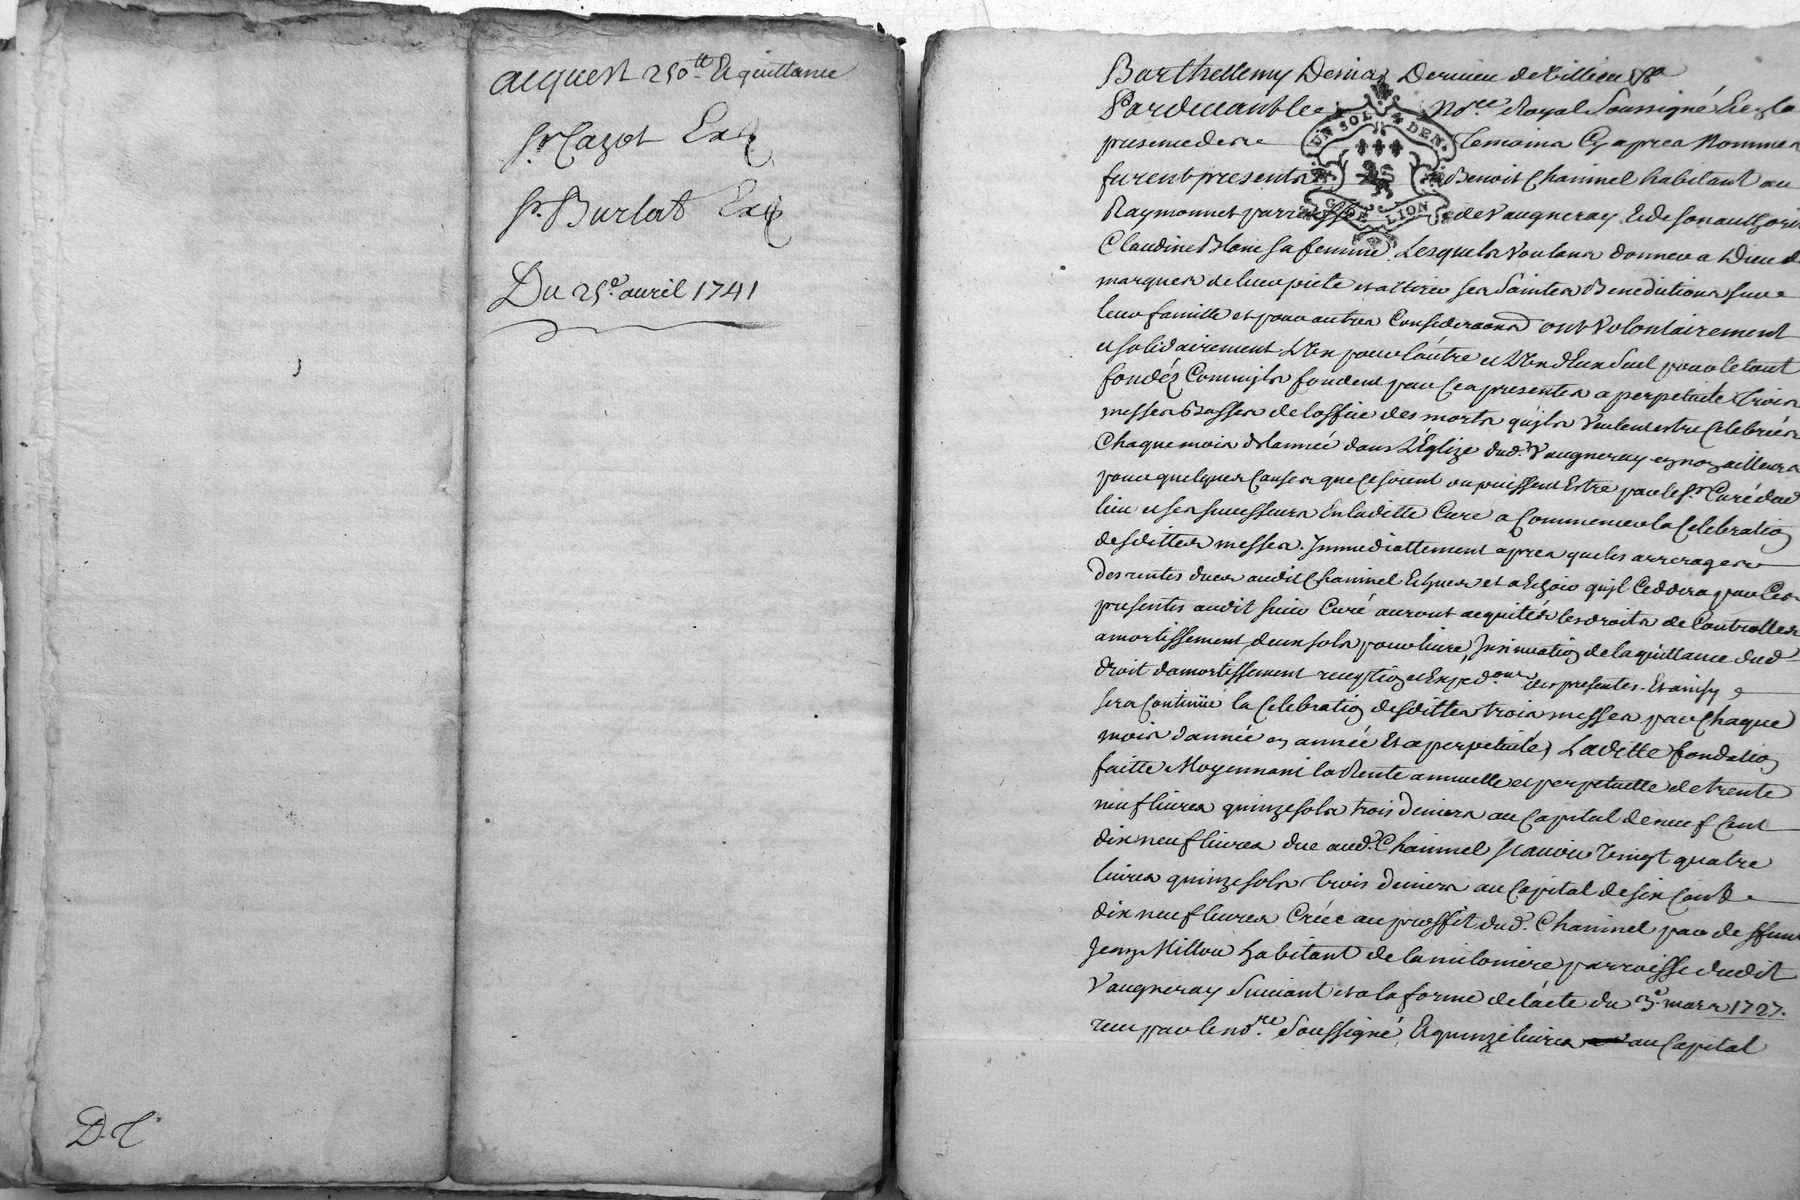 acquest 250 tt Et quittance
Sr Cazot Ex
Sr Burlat Ex
Du 25e. avril 1741
D. C.
Barthellemy Denis
Pardevant le No.re Royal Soussigné Et en la
presence des Temoins Cy apres Nommes
furent presents Benoit Chaninel habitant au
Raymonnet parroisse de Vaugneray, Et de son authori
Claudine Blanc sa femme. Lesquels voulans donner a Dieu d
marques de leur pieté et attirer ses Saintes Benedictions sur
leur famille et pour autres Considera[ti]ons ont Volontairement
et solidairement L'un pour l'autre et L'un d'Eux Seul pour le tout
fondéz Comm'ils fondent par Ces presentes a perpetuité trois
messes Basses de loffice des morts qu'ils Veulent estre Celebrées
Chaque mois de lannée dans L'Eglize dud. Vaugneray et non ailleurs
pour quelques Causes que Ce soient ou puissent Estre par le Sr. Curé dud
lieu et ses successeurs En laditte Cure a Commencer la Celebration
desdittes messes Immediattement apres que les arrerages
des rentes dues audit Chaninel Echues et a Echoir qu'il Ceddera par Ces
presentes audit Sieur Curé auront acquités les droits de Controlle
amortissement, deux sols pour livre, Insinuation de la quittance dud
droit damortissement reception et Exped.ons des presentes. Et ainsy
sera Continüé la Celebration desdittes trois messes par Chaque
mois d'année en année Et a perpetuité, Laditte fondation
faitte Moyennant la Rente annuelle et perpetuelle de trente
neuf livres quinze sols trois deniers au Capital de neuf Cent
dix neuf livres due aud. Chaninel scavoir Vingt quatre
livres quinze sols trois deniers au Capital de six Cent
dix neuf livres Créée au proffit dud. Chaninel par deffunt
Jean Millou habitant de la milonière parroisse dudit
Vaugneray Suivant et a la forme de lacte du 3e. mars 1727.
receu par le no.re Soussigné, Et quinze livres au Capital
UN SOL 4 DEN.
G. DE LION